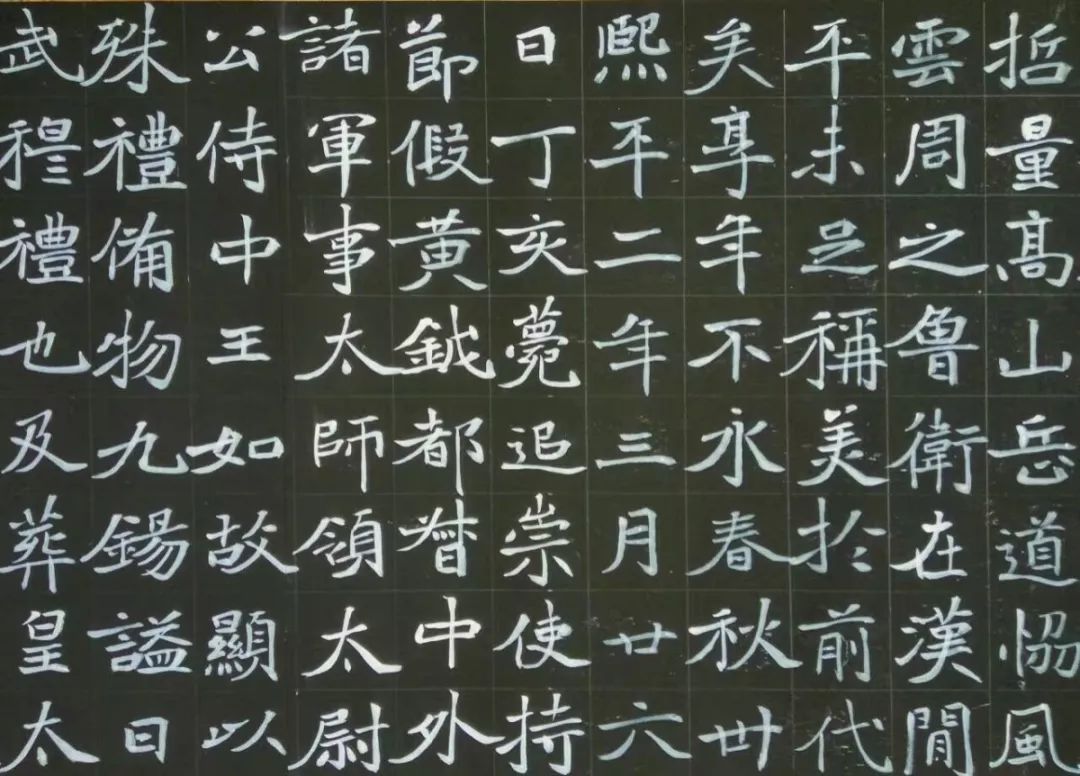 哲量高山岳道協風
雲周之魯衛在漢閒
平未足稱美於前代
矣享年不永春秋卅
熙平二年三月廿六
日丁亥薨追崇使持
節假黃鉞都督中外
諸軍事太師領太尉
公侍中王如故顯以
殊禮備物九錫謚曰
武穆禮也及葬皇太